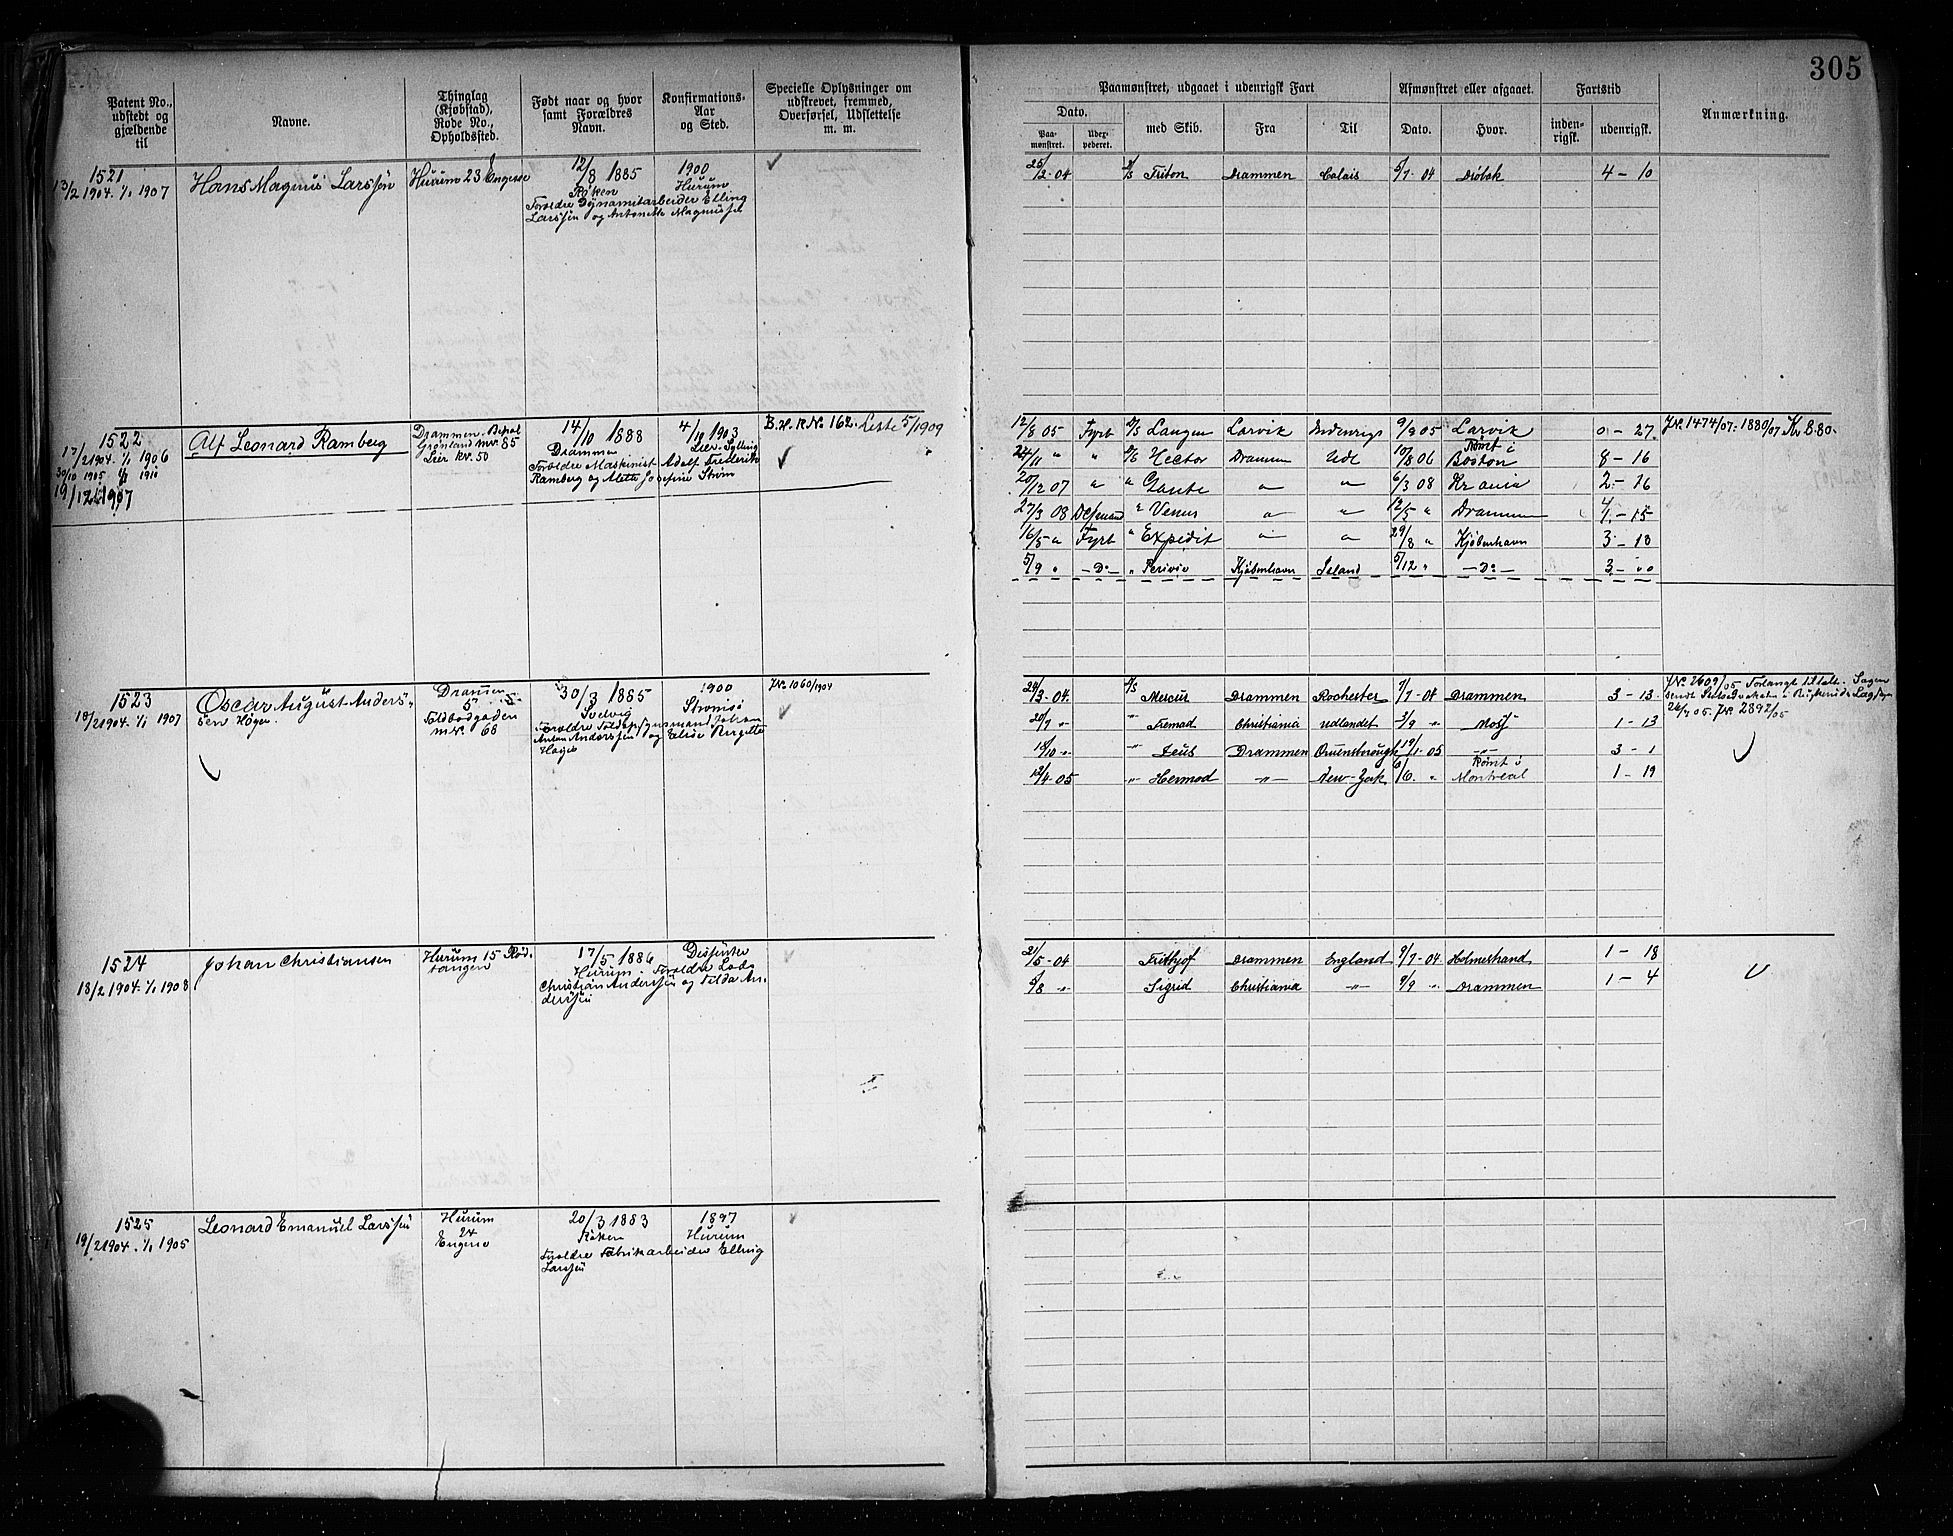 305
Patent No., udstedt og gjældende til
Navne.
Thinglag (Kjøbstad), Rode No., Opholdssted.
Født naar og hvor samt Forældres Navn.
Konfirmations-Aar og Sted.
Specielle Oplysninger om udskrevet, fremmed, Overførsel, Udslettelse m. m.
Paamønstret, udgaaet i udenrigsk Fart
Afmønstret eller afgaaet.
Fartstid
Anmærkning.
Dato.
Paamønstret.
Udexpederet.
med Skib.
Fra
Til
Dato.
Hvor.
indenrigsk.
udenrigsk.
1521
13/2 1904. 1/1 1907
Hans Magnus Larssen
Hurum 23 Engene
12/8 1885
Røken
Forældre Dynamitarbeider Elling
Larssen og Antonette Magnussen
1900
Hurum
25/2-04 Triton Drammen Calais 9/7-04 Drøbak 4-10
1522
17/2 1904. 1/1 1906
30/10 1905 1910
19/12 1907
Alf Leonard Ramberg
Drammen
Grønland mr. 85
Lier kr. 50
14/10 1888
Drammen
Forældre Maskinist Adolf Frederik
Ramberg og Alette Josefine Strøm
4/10 1903
Lier. Sylling
B. H. R. No. 162. Liste 5/1909
12/8 05 Fyrb D/S Langen Larvik Indenrigs 9/9 05 Larvik 0-27
24/11 " " D/S Hector Drammen Udl 10/8 06 Rømt i Boston 8-16
20/12 07 " " Gaute " " 6/3 08 Kr ania 2-16
27/3 08 " Venus " " 12/5 " Drammen 4-15
16/5 " Fyrb " Expedit " " 29/8 " Kjøbenhavn 3-13
5/9 " -Do- " Kjøbenhavn Island 5/12 " -Do- 3-00
J.No. 1474/07. 1880/07 Kr 8.80.
1523
18/2 1904. 1/1 1907
Oscar August Anders-
sen Høgen
Drammen
5
Toldbodgaden
mr. 66
30/3 1885
Svelvig
Forældre Toldopsynsmand Johan
Anton Anderssen og Elise Birgitte
1900
Strømsø
J.No. 1060/1904
29/3-04. D/S Mercur Drammen Rochester 9/7-04 Drammen 3-13
20/7 " " Fremad Christiania Udlandet 2/9 " Moss 1-13
18/10 " " Zeus Drammen Queensborough 19/1-05 -"- 3-1
12/4-05 " Hermod -"- New-York 6/6. " Rømt i Montreal 1-19
J.No. 2609/05 Forlangt tiltalt. Sagen
sendt Statsadvokaten i Buskeruds Lagsogn
26/7 05. J.No. 2892/05
1524
18/2 1904. 1/1 1908
Johan Christiansen
Hurum 15 Rød-
tangen
17/5 1886
Hurum. Forældre Lods
Christian Anderssen og Tilda An-
derssen
Dissenter
21/5-04 Frithjof Drammen England 9/7-04 Holmestrand 1-18
5/8 " Sigrid Christiania -"- 9/9 " Drammen 1-4
1525
19/2 1904. 1/1 1905
Leonard Emanuel Larssen
Hurum
24
Engene
20/3 1883
Røken
Forældre Fabrikarbeider Elling
Larssen
1897
Hurum